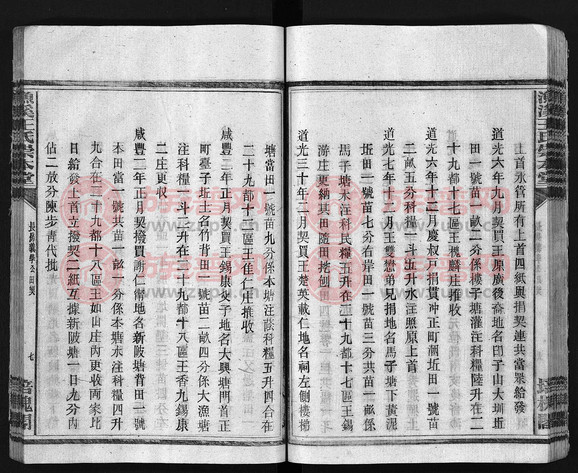 上首永管所有上首四紙輿捐契連共當眾給發
道光六年九月契買王原廣後裔地名印子山大圳坵
田一號苗一畝二分係樓子塘灌注科糧陸升在二
十九都十七區王槐麟庄推收
道光六年十二月慶叔戸捐貫沖正町嗣坵田一號苗
二畝五分科糧一斗三升水注照原上首
道光七年十二月王雙懋弟兄捐地名馬子塘下黃泥
坵田一號苗七分右岸田一號苗三分共苗一畝係
馬子塘水注科民糧五升在二十九都十七區王錫
游庄更納其田隨田挖刨
道光三十年二月契買王楚英載仁地名祠左側樓梯
塘當田一號苗九分係本塘注蔭科糧五升四合在
二十九都十一區王佳仁庄推收
咸豐二年正月契買王錫康燮子地名大興塘門首正
町臺子坵土名竹背田一號苗二畝四分係大漁塘
注科糧一斗二升在二十九都十八區王香九錫康
二庄更收
咸豐二年正月契撥買謝仁甯地名新陂塘背田一號
本田當一號共苗一畝一分係本塘水注科糧四升
九合在二十九都十八區王如山庄內更收兩家比
日給發上首立撥契二紙互據新陂塘一日九分內
佔二放分陳步青代批
七
漁溪王氏崇本堂
培槐閣